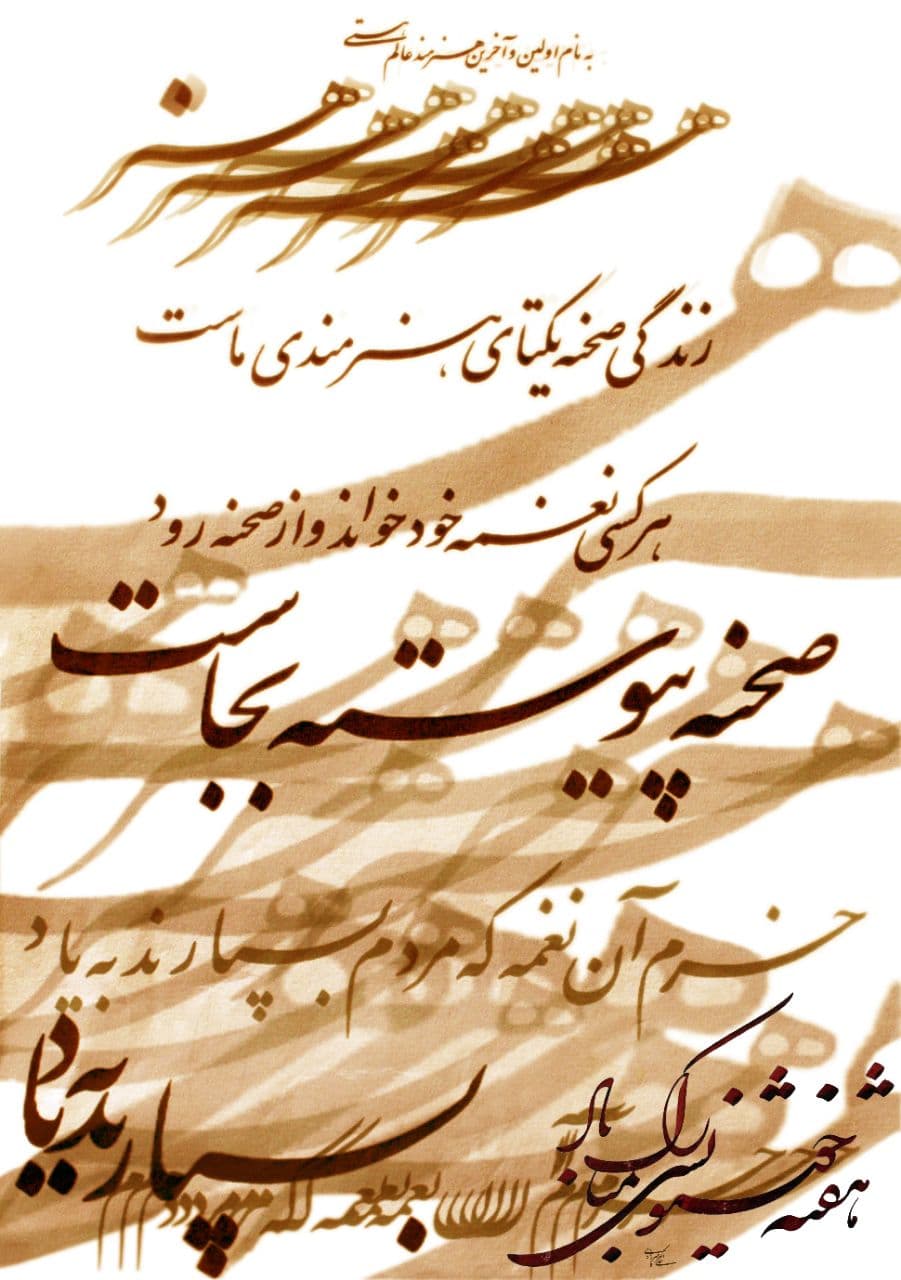 به نام اولین و آخرین هنرمند عالم هستی
هنر
زندگی صحنه یکتای هنرمندی ماست
هر کسی نغمه خود خواند و از صحنه رود
صحنه پیوسته بجاست
خرم آن نغمه که مردم بسپارند به یاد
بسپارند به یاد
هفته خوشنویسی مبارک باد